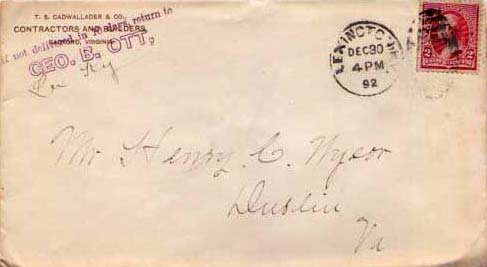 T. S. CADWALLADER & CO.,
CONTRACTORS AND BUILDERS,
RADFORD, VIRGINIA.
If not delivered in days, return to
GEO. B. OTT,
Lex Ky
LEXINGTON
DEC 30
4 PM
92
2 2
Mr Henry C. Wysor
Dublin
Va